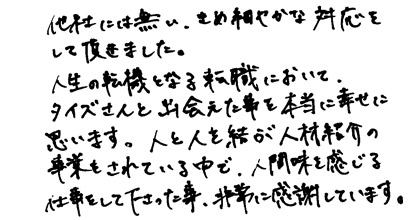 他社には無い、きめ細やかな対応を
して頂きました。
人生の転機となる転職において、
タイズさんと出会えた事を本当に幸せに
思います。人と人を結ぶ人材紹介の
事業をされている中で、人間味を感じる
仕事をして下さった事、非常に感謝しています。